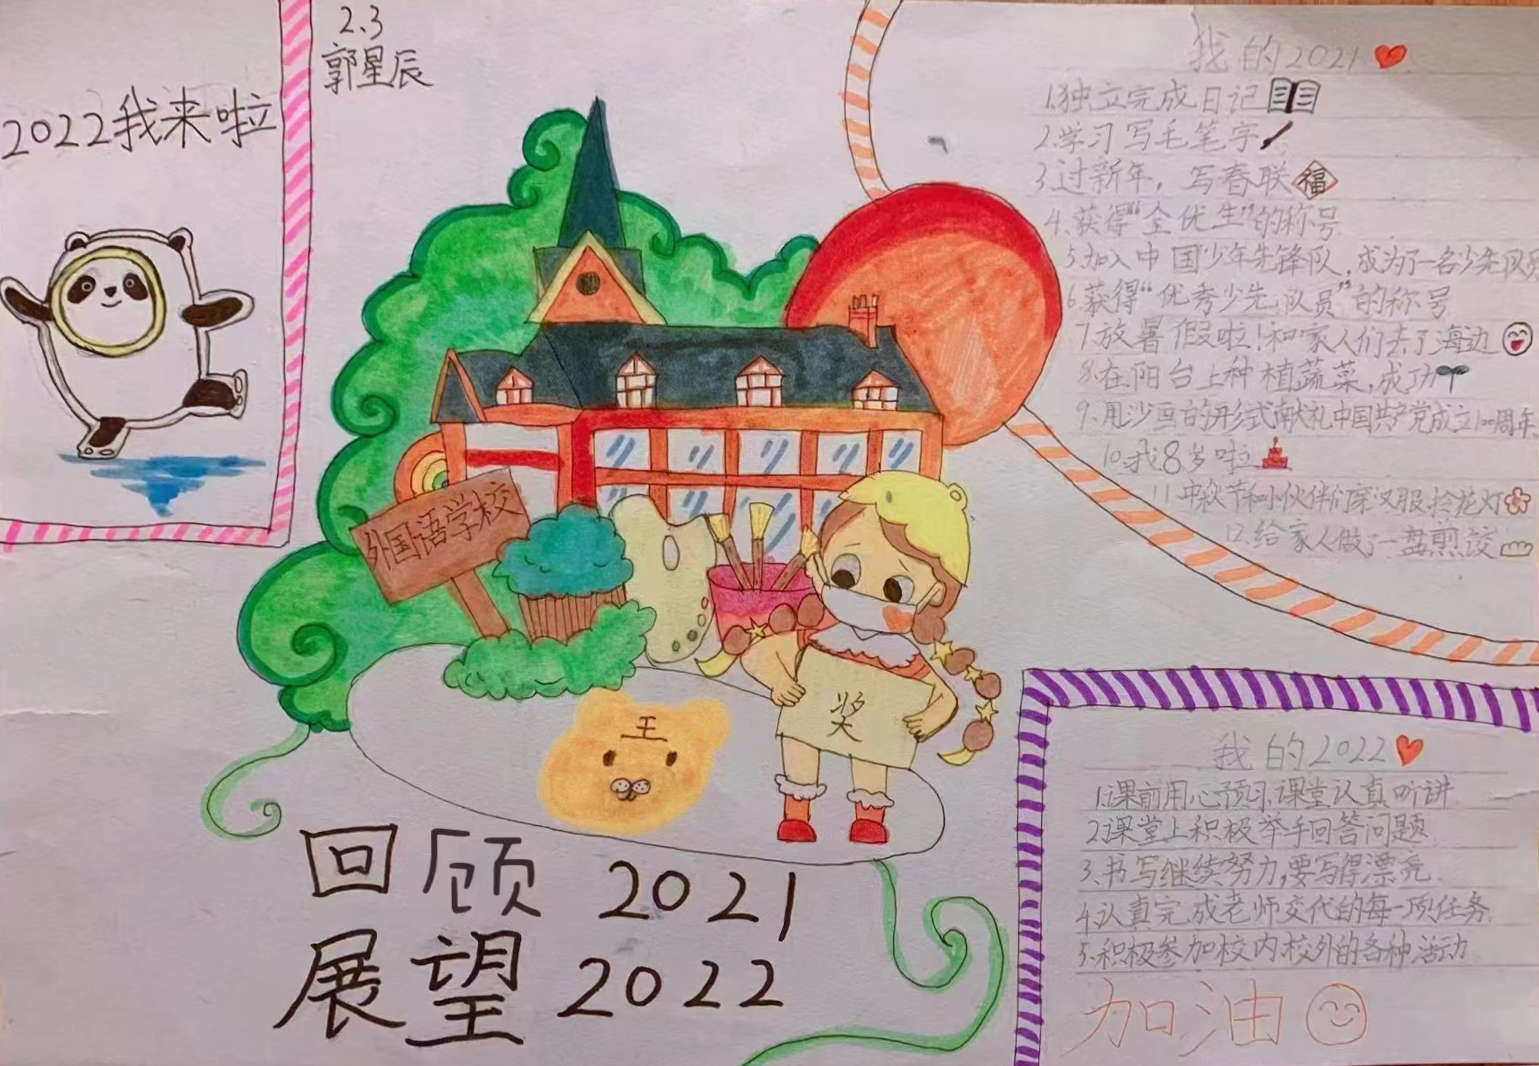 2.3
郭星辰
2022我来啦
我的2021
1.独立完成日记
2.学习写毛笔字
3.过新年，写春联福
4.获得“全优生”的称号
5.加入中国少年先锋队，成为了一名少先队员
6.获得“优秀少先队员”的称号
7.放暑假啦！和家人们去了海边
8.在阳台上种植蔬菜，成功
9.用沙画的形式献礼中国共产党成立100周年
10.我8岁啦
11.中秋节和小伙伴们穿汉服，拎花灯
12.给家人做了一盘煎饺
外国语学校
奖
王
回顾 2021
展望 2022
我的2022
1.课前用心预习，课堂认真听讲
2.课堂上积极举手回答问题
3.书写继续努力，要写得漂亮
4.认真完成老师交代的每一项任务
5.积极参加校内校外的各种活动
加油